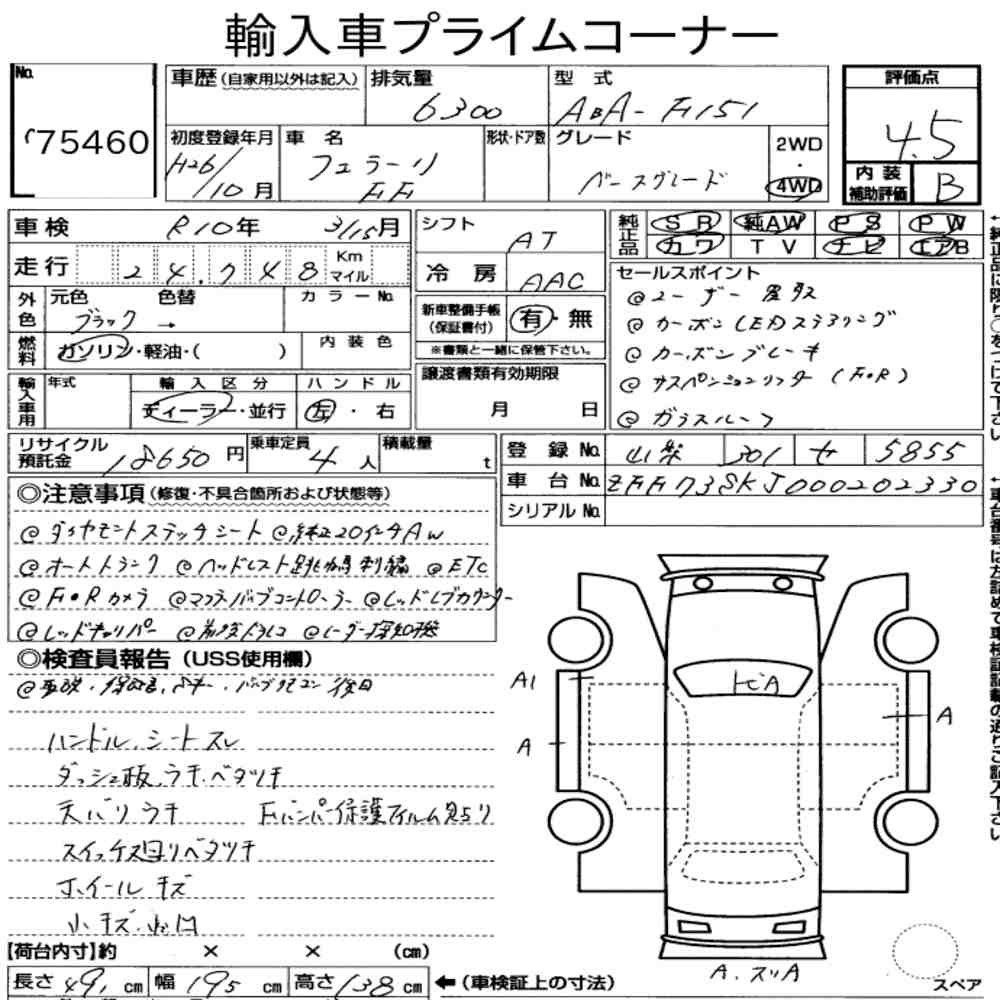 輸入車プライムコーナー
No. 75460
車歴 (自家用以外は記入) 排気量 6300 型式 ABA-F151 評価点 4.5
初度登録年月 H26/10月 車名 フェラーリ FF 形状・ドア数 グレード ベースグレード 2WD・4WD 内装補助評価 B
車検 R10年 3/15月 シフト AT 純正品 SR 純AW PS PW
カワ TV ナビ エアB
走行 24,748 Km マイル 冷房 AAC
外色 元色 ブラック → 色替 カラーNo.
燃料 ガソリン・軽油・( ) 内装色
新車整備手帳 (保証書付) 有・無
※書類と一緒に保管下さい。
輸入車用 年式 輸入区分 ディーラー・並行 ハンドル 左・右
譲渡書類有効期限 月 日
セールスポイント
@ユーザー買取
@カーボンLEDステアリング
@カーボンブレーキ
@サスペンションリフター (F・R)
@ガラスルーフ
リサイクル預託金 18650円 乗車定員 4人 積載量 t
登録No. 山梨 301 せ 5855
車台No. ZFF73SKJ000202330
シリアルNo.
◎注意事項 (修復・不具合箇所および状態等)
@ダイヤモンドステッチシート @純正20インチAW
@オートトランク @ヘッドレスト跳馬刺繍 @ETC
@F・Rカメラ @マフラーバルブコントローラー @レッドレブカウンター
@レッドキャリパー @前後ドラレコ @レーダー探知機
◎検査員報告 (USS使用欄)
@取説・保証書、Sキー・バルブリモコン後日
ハンドル、シートスレ
ダッシュ板、ウキ・ベタツキ
天バリウキ Fバンパー保護フィルム貼り
スイッチ類回りベタツキ
ホイールキズ
小キズ、小凹
A1
A
トビA
A
A、スリA
スペア
【荷台内寸】約 × × (cm)
長さ 491 cm 幅 195 cm 高さ 138 cm ←(車検証上の寸法)
↑純正品に限り○をつけて下さい。
↑車台番号は左詰めで車検証記載の通りご記入下さい。